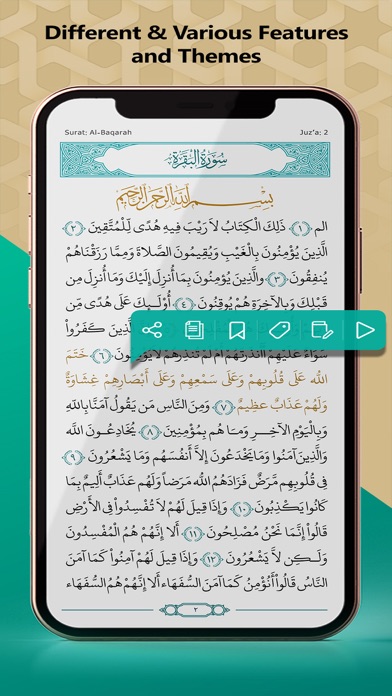 Different & Various Features
and Themes
Surat: Al-Baqarah Juz'a; 2
سُورَةُ الْبَقَرَةِ
بِسْمِ اللهِ الرَّحْمَنِ الرَّحِيمِ
الم ﴿١﴾ ذَلِكَ الْكِتَابُ لاَ رَيْبَ فِيهِ هُدًى لِّلْمُتَّقِينَ ﴿٢﴾
الَّذِينَ يُؤْمِنُونَ بِالْغَيْبِ وَيُقِيمُونَ الصَّلاةَ وَمِمَّا رَزَقْنَاهُمْ
يُنفِقُونَ ﴿٣﴾ والَّذِينَ يُؤْمِنُونَ بِمَا أُنزِلَ إِلَيْكَ وَمَا أُنزِلَ مِن
قَبْلِكَ وَبِالآخِرَةِ هُمْ يُوقِنُونَ ﴿٤﴾ أُوْلَـئِكَ عَلَى هُدًى مِّن
كَفَرُواْ
سَوَاءٌ عَلَيْهِمْ أَأَنذَرْتَهُمْ أَمْ لَمْ تُنذِرْهُمْ لاَ يُؤْمِنُونَ ﴿٦﴾ خَتَمَ
اللّه عَلَى قُلُوبِهِمْ وَعَلَى سَمْعِهِمْ وَعَلَى أَبْصَارِهِمْ غِشَاوَةٌ
وَلَهُمْ عَذَابٌ عظِيمٌ ﴿٧﴾ وَمِنَ النَّاسِ مَن يَقُولُ آمَنَّا بِاللّهِ
وَبِالْيَوْمِ الآخِرِ وَمَا هُم بِمُؤْمِنِينَ ﴿٨﴾ يُخَادِعُونَ اللّهَ
وَالَّذِينَ آمَنُوا وَمَا يَخْدَعُونَ إِلاَّ أَنفُسَهُم وَمَا يَشْعُرُونَ ﴿٩﴾
فِي قُلُوبِهِم مَّرَضٌ فَزَادَهُمُ اللّهُ مَرَضاً وَلَهُم عَذَابٌ أَلِيمٌ بِمَا
كَانُوا يَكْذِبُونَ ﴿١٠﴾ وَإِذَا قِيلَ لَهُمْ لاَ تُفْسِدُواْ فِي الأَرْضِ
قَالُواْ إِنَّمَا نَحْنُ مُصْلِحُونَ ﴿١١﴾ أَلا إِنَّهُمْ هُمُ الْمُفْسِدُونَ
وَلَـكِن لاَّ يَشْعُرُونَ ﴿١٢﴾ وَإِذَا قِيلَ لَهُمْ آمِنُواْ كَمَا آمَنَ
النَّاسُ قَالُواْ أَنُؤْمِنُ كَمَا آمَنَ السُّفَهَاء أَلا إِنَّهُمْ هُمُ السُّفَهَاء
٣